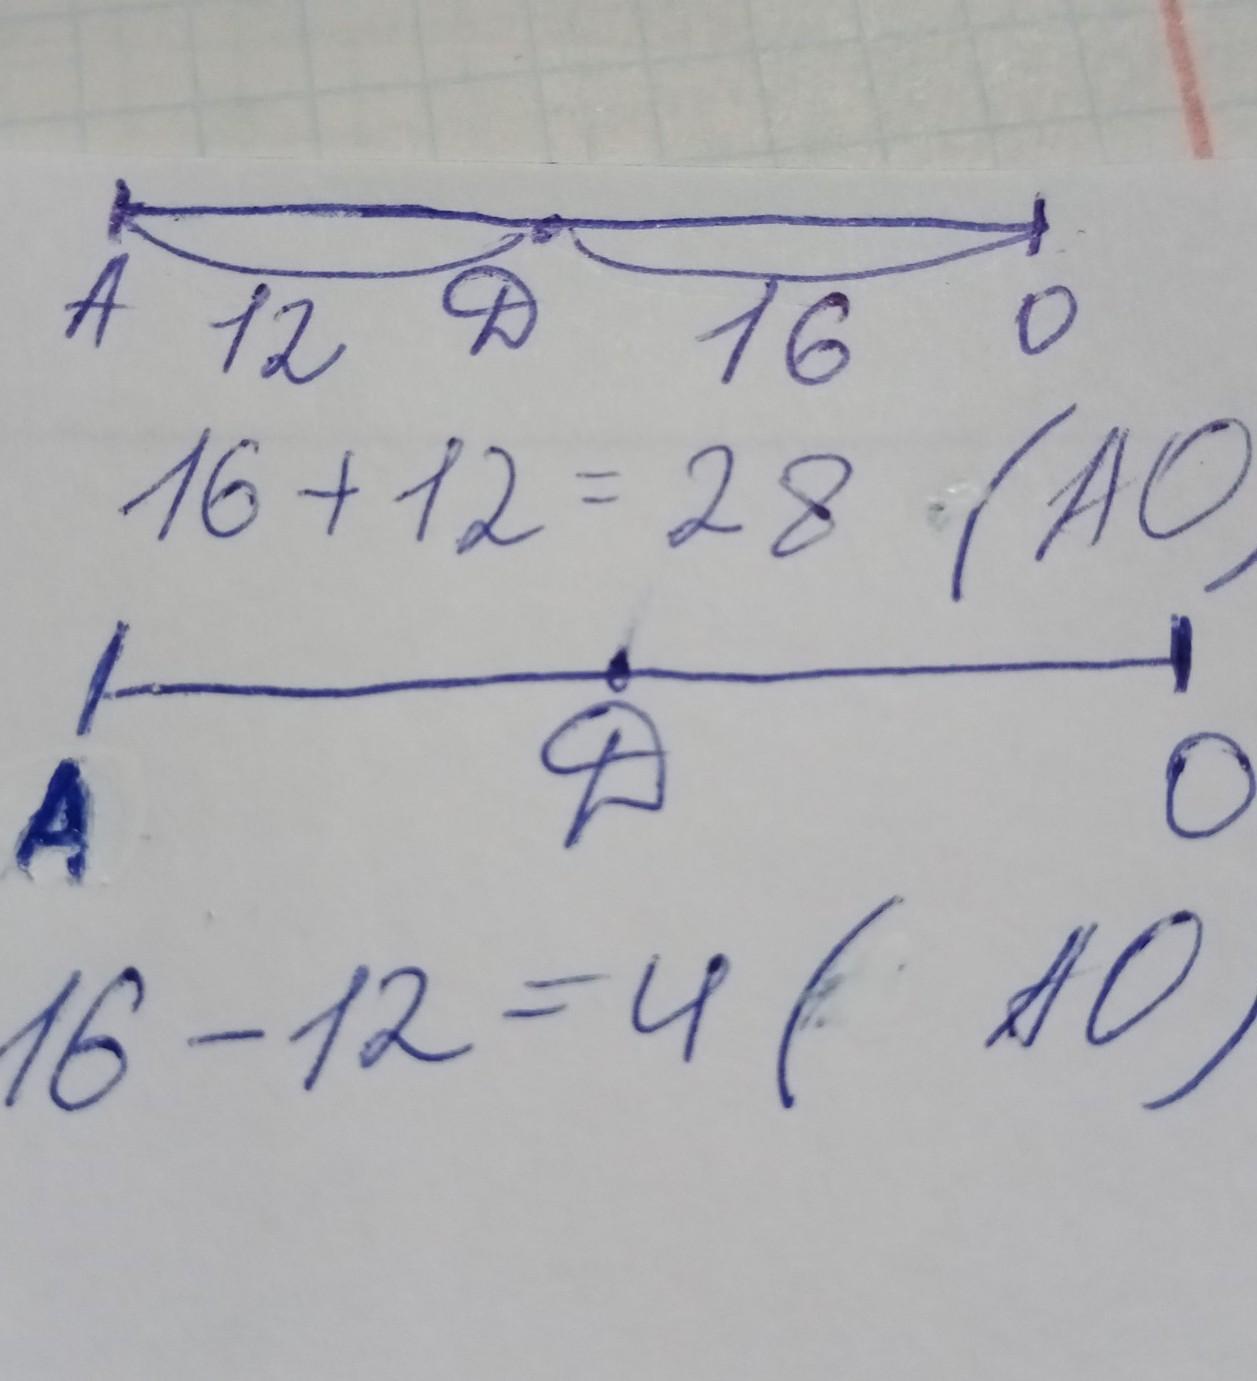 А 12 Д 16 О
16 + 12 = 28 (АО)
А Д О
16 - 12 = 4 ( АО)